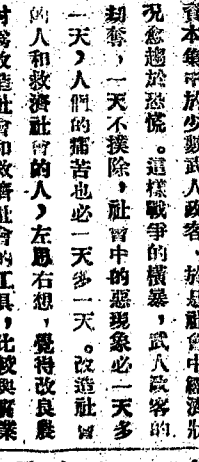 資本集中於少數武人政客、於是社會中經濟狀
況愈趨於恐慌。這樣戰爭的橫暴，武人政客的
刼奪，一天不撲除，社會中的惡現象必一天多
一天，人們的痛苦也必一天多一天。改造社會
的人和救濟社會的人，左思右想，覺得改良農
村爲改造社會和救濟社會的工具，比較與實業